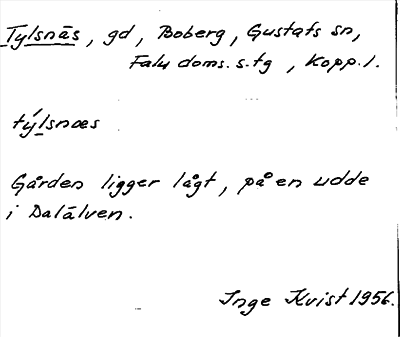 Tylsnäs, gd, Boberg, Gustafs sn,
Falu doms. s. tg, Kopp. l.
týlsnæs
Gården ligger lågt, på en udde
i Dalälven.
Inge Kvist 1956.